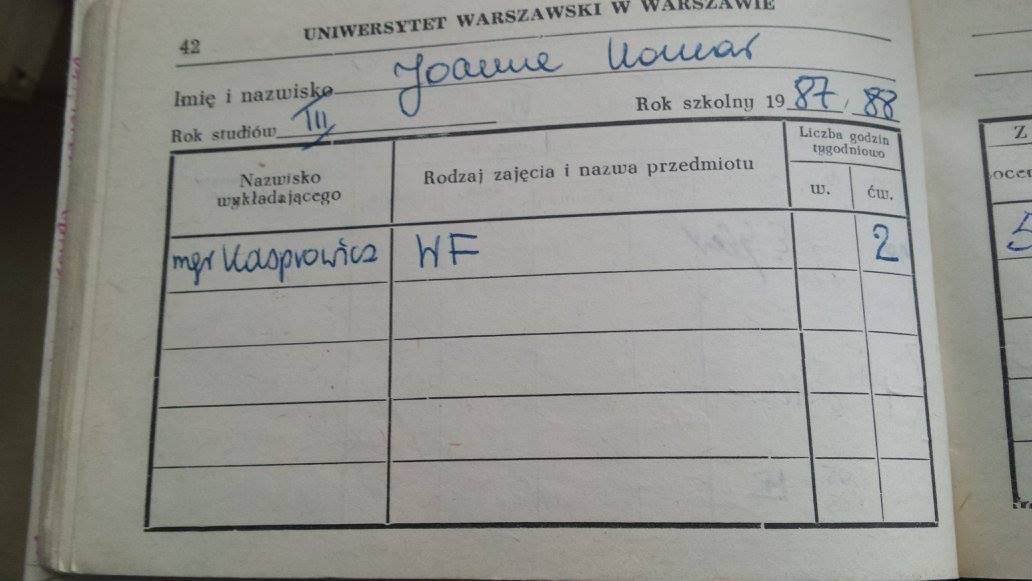 42 UNIWERSYTET WARSZAWSKI W WARSZAWIE
Imię i nazwisko Joanne Komar
Rok studiów III Rok szkolny 1987/88
Nazwisko wykładającego
Rodzaj zajęcia i nazwa przedmiotu
Liczba godzin tygodniowo
w. ćw.
mgr Kasprowicz WF 2
Z
ocen
5